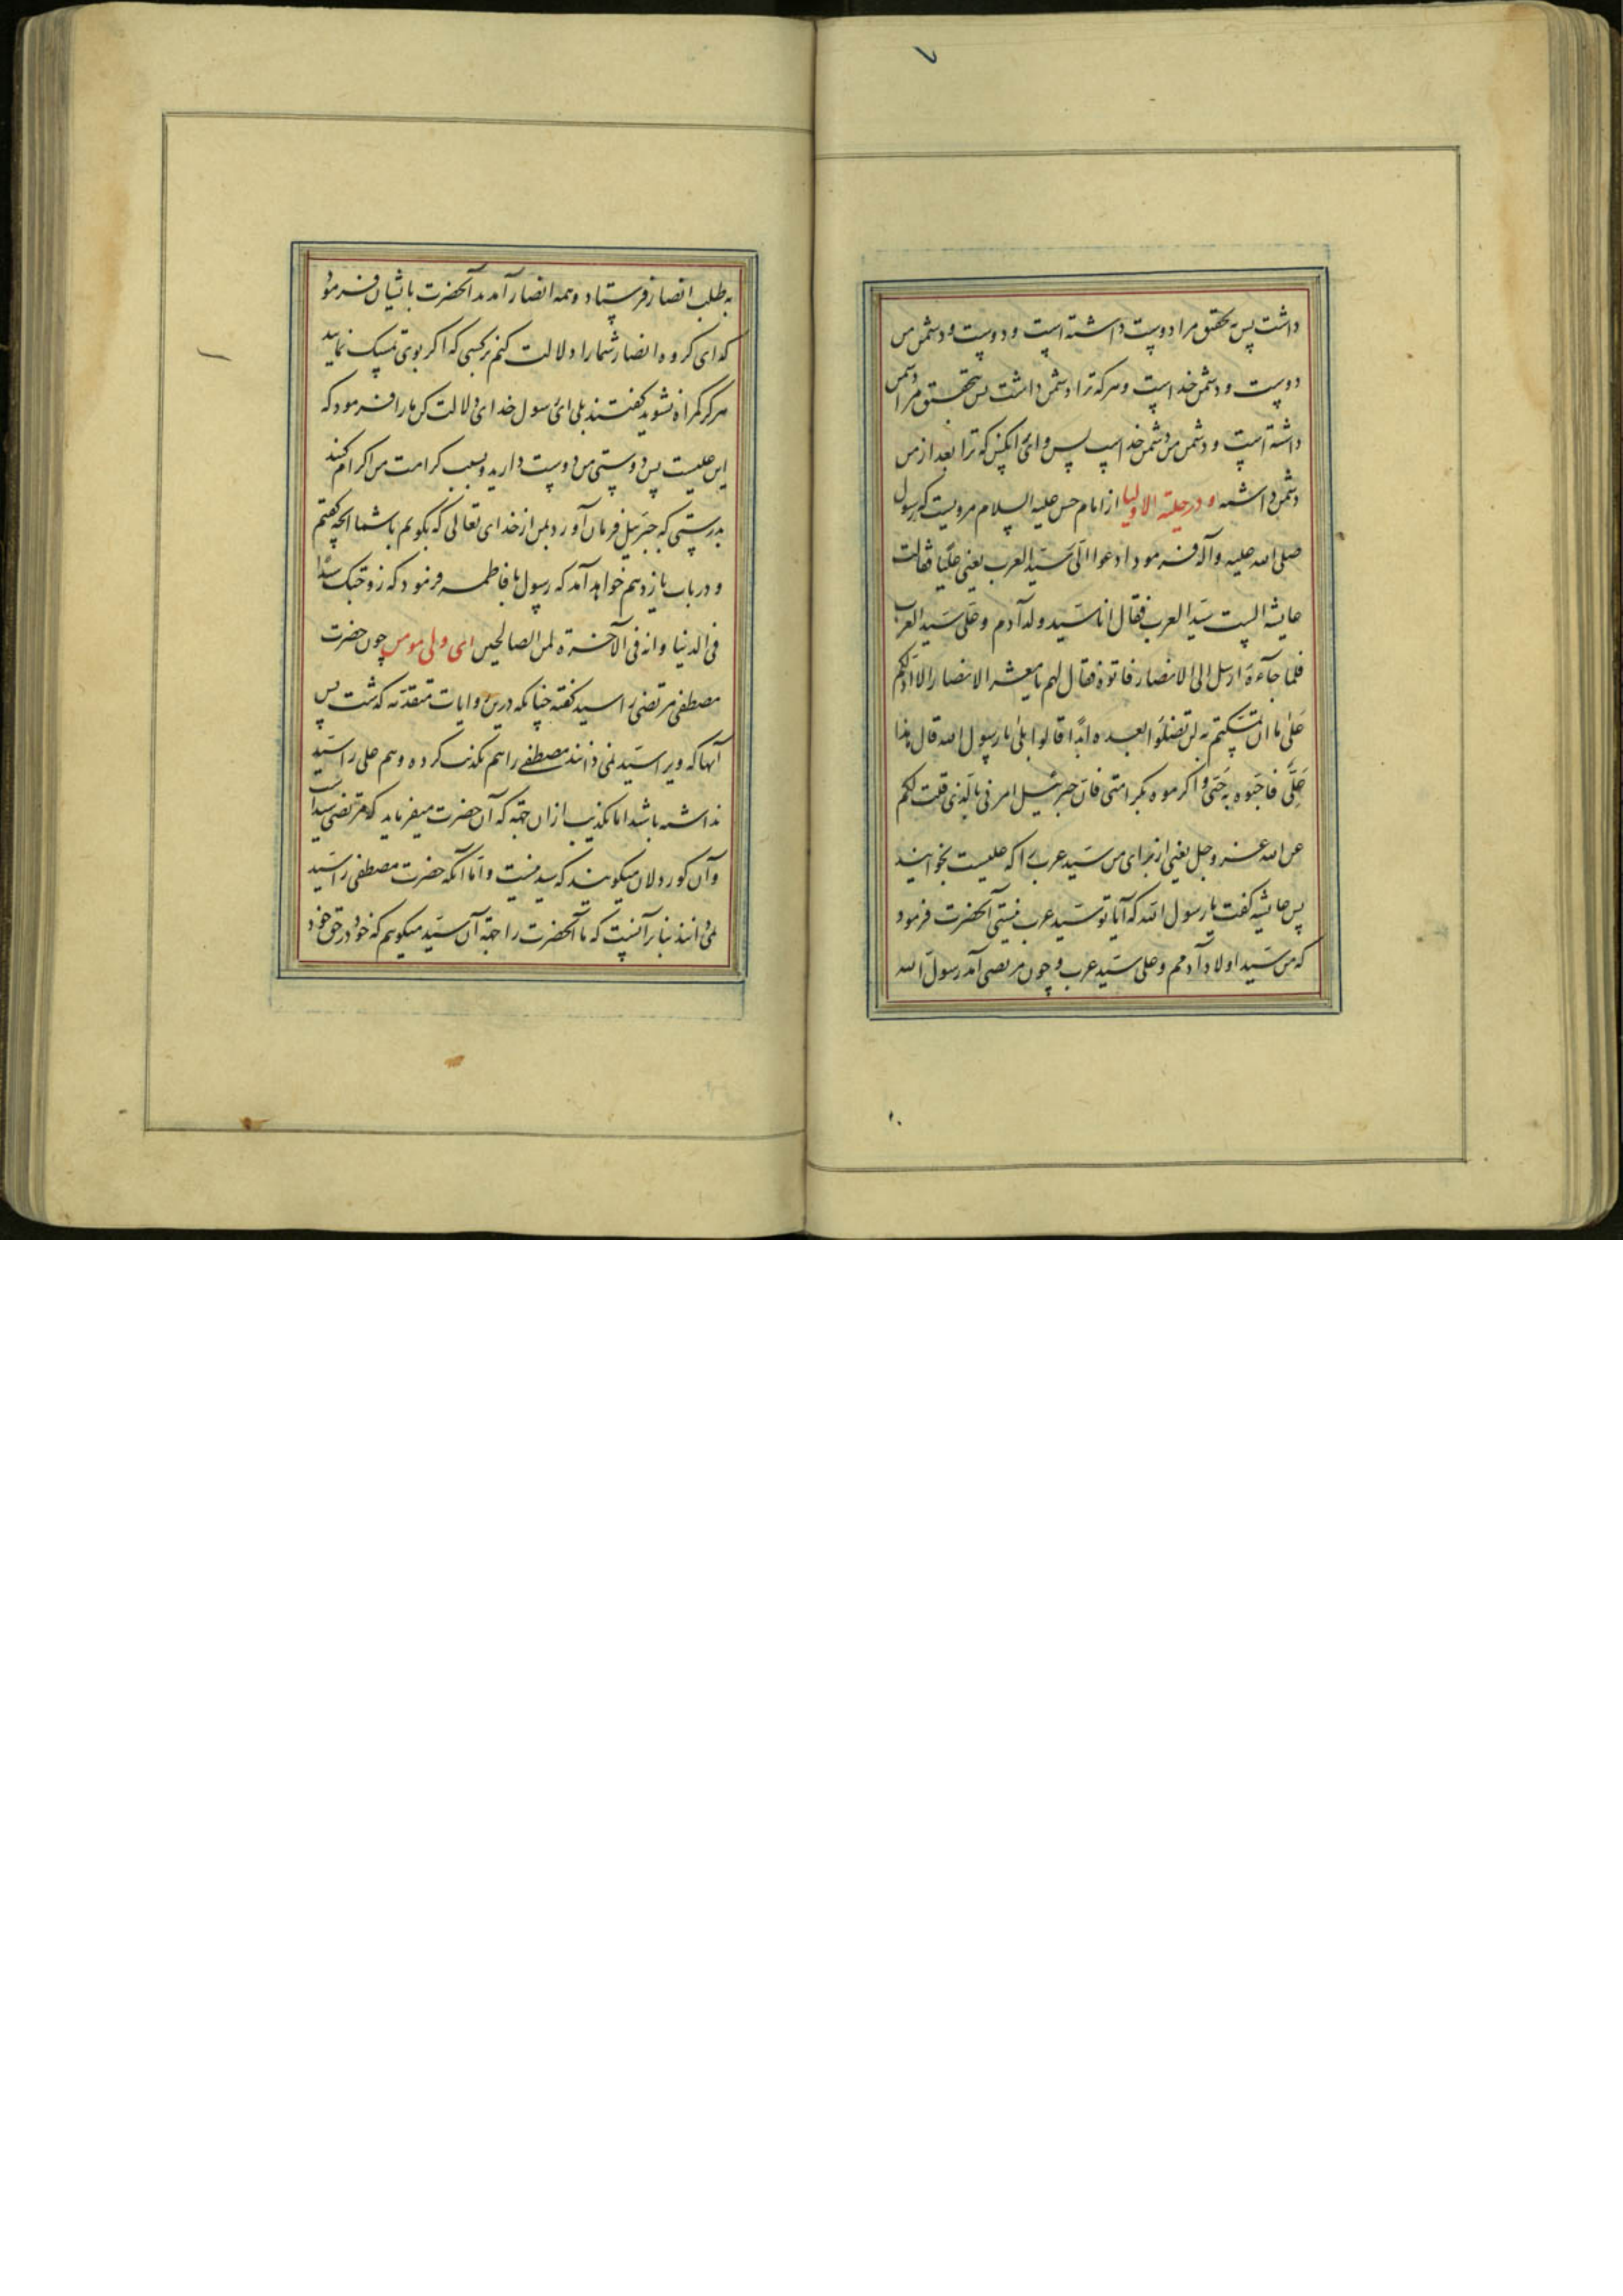 داشت پس بتحقیق مرا دوست داشته است و دوست و دشمن من
دوست و دشمن خداست و هرکه ترا دشمن داشت پس بتحقیق مرا دشمن
داشته است و دشمن من دشمن خداست پس وای آنکس که ترا بعد از من
دشمن داشته و در حلیة الاولیا از امام حسن علیه السلام مرویست که رسول
صلی الله علیه وآله فرمود ادعوا الیّ سیّد العرب یعنی علیّا فقالت
عایشه الست سیّد العرب فقال انا سیّد ولد آدم و علی سیّد العرب
فلما جآءه ارسل الی الانصار فاتوه فقال لهم یا معشر الانصار الا ادلّکم
علی ما ان تمسّکتم به لن تضلّوا بعده ابدًا قالوا بلی یا رسول الله قال هذا
علیّ فاحبّوه بحبّی و اکرموه بکرامتی فانّ جبرئیل امرنی بالّذی قلت لکم
عن الله عزّ وجلّ یعنی از برای من سیّد عرب را که علیست بخوانید
پس عایشه گفت یا رسول الله که آیا تو سیّد عرب نیستی آنحضرت فرمود
که من سیّد اولاد آدمم و علی سیّد عرب و چون مرتضی آمد رسول الله
به طلب انصار فرستاد و همه انصار آمدند آنحضرت با ایشان فرمود
که ای گروه انصار شما را دلالت کنم بر کسی که اگر بوی تمسک نمایید
هرگز گمراه نشوید گفتند بلی ای رسول خدای دلالت کن ما را فرمود که
این علیست پس بدوستی من دوست دارید و بسبب کرامت من اکرام کنید
بدرستی که جبرئیل فرمان آورد بمن از خدای تعالی که بگویم با شما آنچه گفتم
و در باب یازدهم خواهد آمد که رسول با فاطمه فرمود که زوجتک سیّدا
فی الدنیا وانه فی الآخرة لمن الصالحین ای ولی مومن چون حضرت
مصطفی مرتضی را سید گفته چنانکه درین روایات متقدمه گذشت پس
آنها که ویرا سیّد نمی دانند مصطفی را هم تکذیب کرده و هم علی را سیّد
نداشته باشد اما تکذیب از آن جهة که آن حضرت میفرماید که مرتضی سید است
و آن کور دلان میگویند که سید نیست و امّا آنکه حضرت مصطفی را سیّد
نمی دانند بنابر آنست که ما آنحضرت را جهة آن سیّد میگویم که خود در حق خود